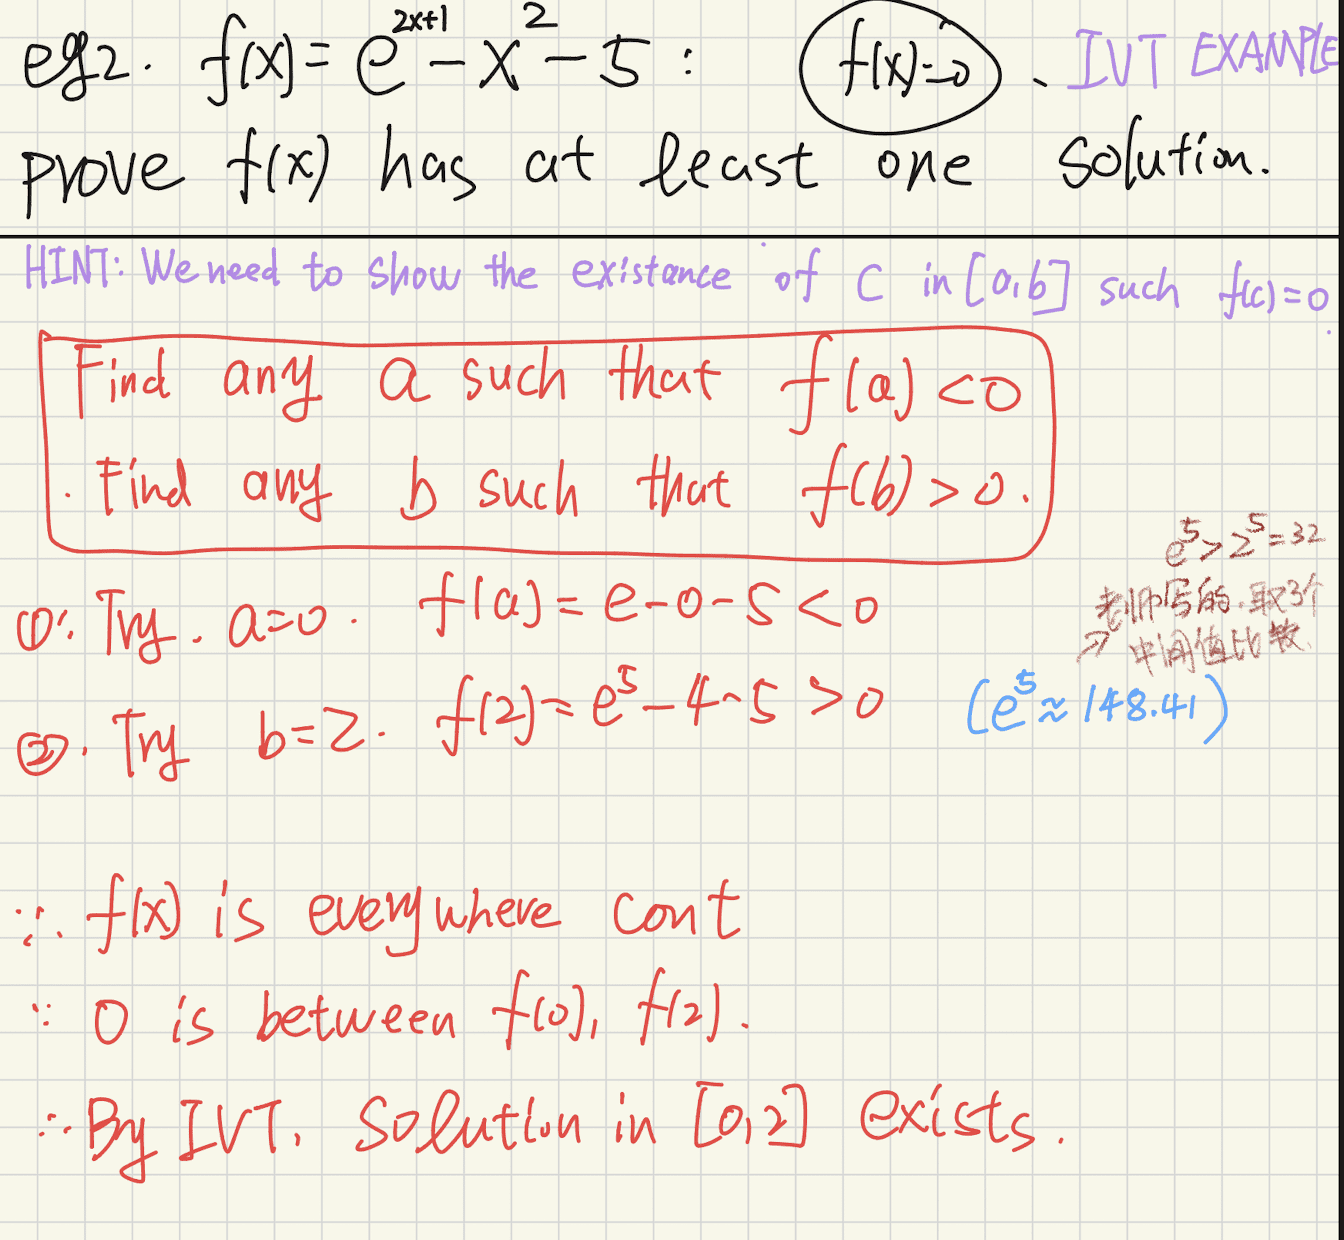 eg2. f(x) = e^{2x+1} - x^2 - 5 : f(x)=0 . IVT EXAMPLE
prove f(x) has at least one solution.
HINT: We need to show the existance of C in [a,b] such f(c)=0.
Find any a such that f(a) <0
. Find any b such that f(b) > 0.
e^5 > 2^5 = 32
老师写的.取3个
→ 中间值比较.
①. Try. a=0. f(a) = e-0-5 < 0
②. Try b=2. f(2) = e^5 - 4 - 5 > 0 (e^5 ≈ 148.41)
∴ f(x) is everywhere cont
∵ 0 is between f(0), f(2).
∴ By IVT, Solution in [0,2] exists.